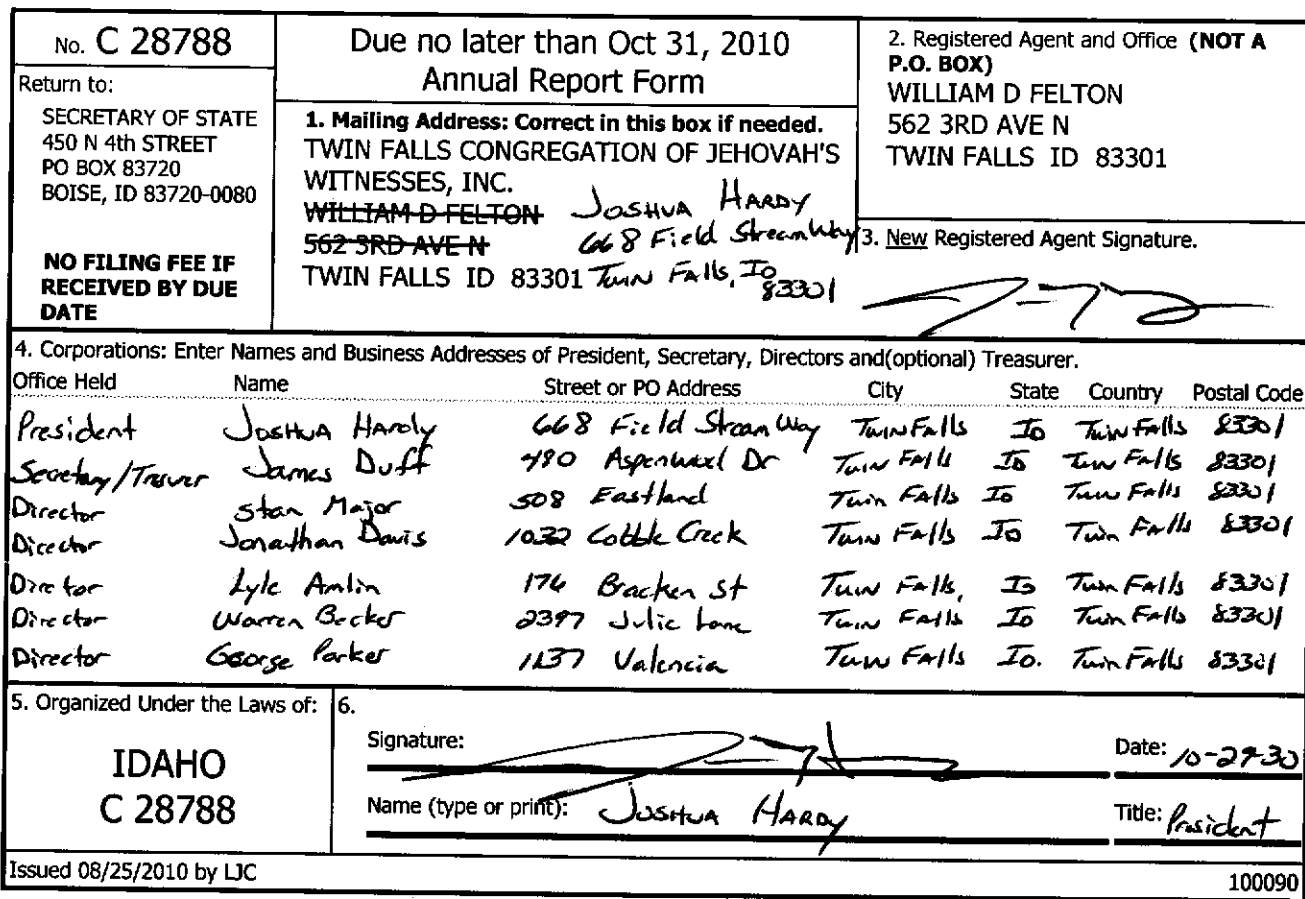 No. C 28788
Return to:
SECRETARY OF STATE
450 N 4th STREET
PO BOX 83720
BOISE, ID 83720-0080
NO FILING FEE IF
RECEIVED BY DUE
DATE
Due no later than Oct 31, 2010
Annual Report Form
1. Mailing Address: Correct in this box if needed.
TWIN FALLS CONGREGATION OF JEHOVAH'S
WITNESSES, INC.
WILLIAM D FELTON JOSHUA HARDY
562 3RD AVE N 668 Field Stream Way
TWIN FALLS ID 83301 Twin Falls, ID
83301
2. Registered Agent and Office (NOT A
P.O. BOX)
WILLIAM D FELTON
562 3RD AVE N
TWIN FALLS ID 83301
3. New Registered Agent Signature.
4. Corporations: Enter Names and Business Addresses of President, Secretary, Directors and(optional) Treasurer.
Office Held Name Street or PO Address City State Country Postal Code
President Joshua Hardy 668 Field Stream Way Twin Falls ID Twin Falls 83301
Secretary/ James Duff Aspenwood Dr Twin Falls ID Twin Falls 83301
Director Stan Major 508 Eastland Twin Falls ID Twin Falls 83301
Director Jonathan Davis 1032 Cobble Creek Twin Falls ID Twin Falls 83301
Director Lyle Amlin 176 Bracken St Twin Falls, ID Twin Falls 83301
Director Warren Becker 2397 Julie Lane Twin Falls ID Twin Falls 83301
Director George Parker Valencia Twin Falls ID. Twin Falls 83301
5. Organized Under the Laws of:
IDAHO
C 28788
6.
Signature:
Date:
Name (type or print): JOSHUA HARDY
Title: President
Issued 08/25/2010 by LJC
100090